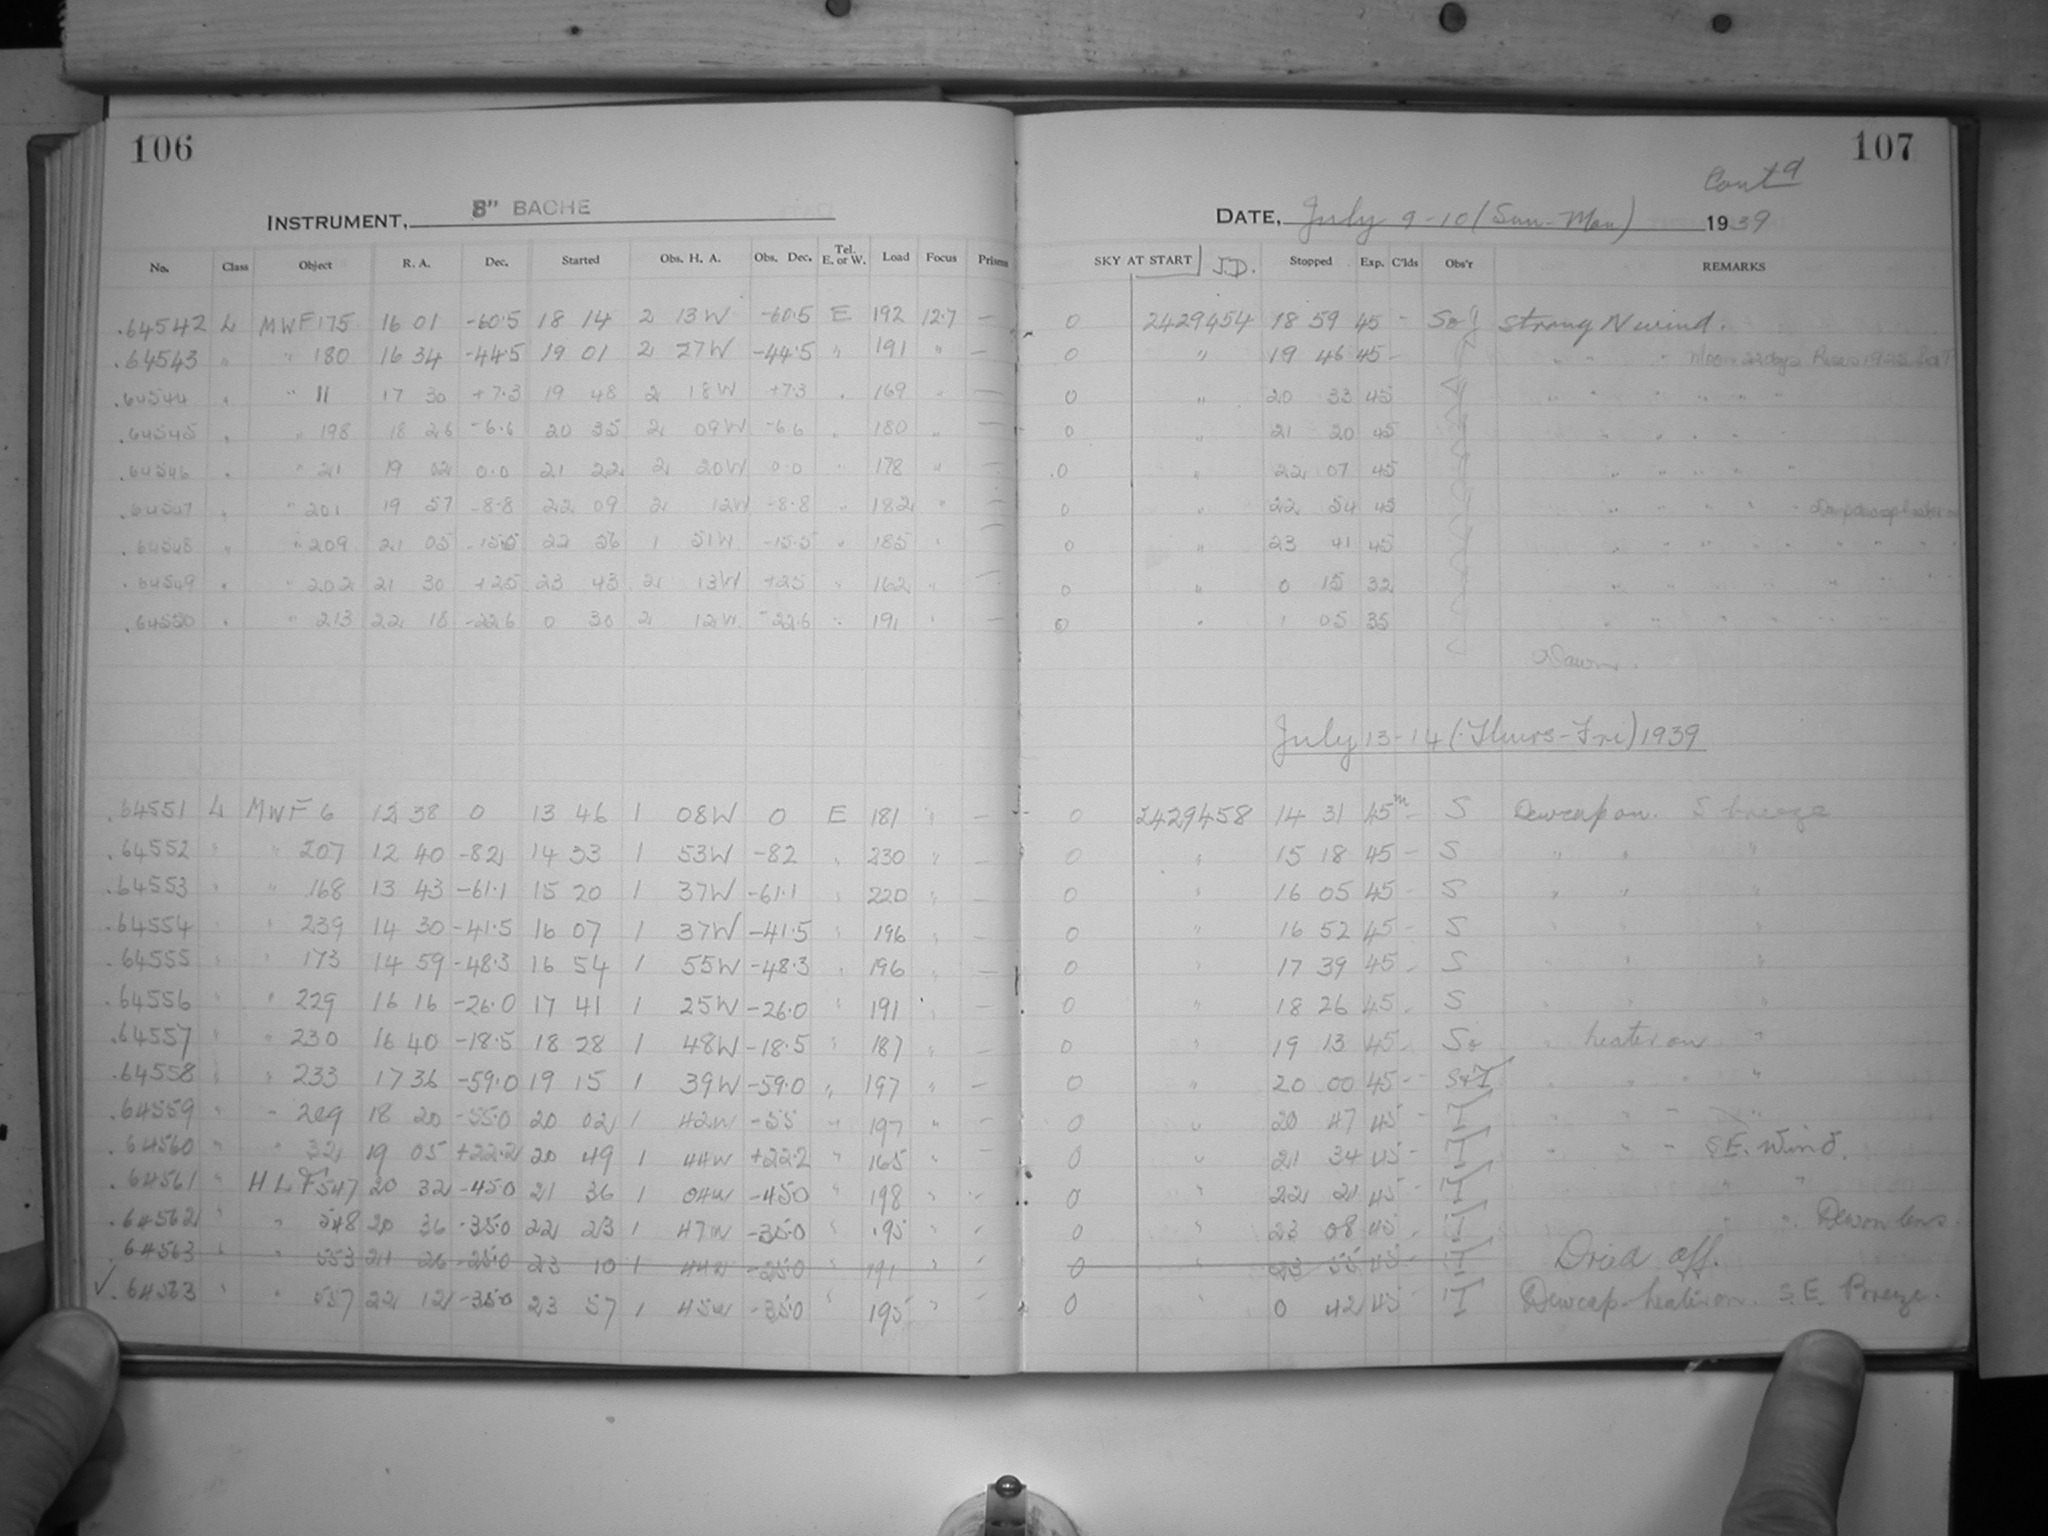 106
INSTRUMENT, 8" BACHE
No. Class Object R. A. Dec. Started Obs. H. A. Obs. Dec. Tel. E. or W. Load Focus Prisms
.64542 L MWF 175 16 01 -60.5 18 14 2 13W -60.5 E 192 12.7 —
.64543 " " 180 16 34 -44.5 19 01 2 27W -44.5 " 191 " —
.64544 " " 11 17 30 +7.3 19 48 2 18W +7.3 " 169 " —
.64545 " " 198 18 26 -6.6 20 35 2 09W -6.6 " 180 " —
.64546 " " 21 19 02 0.0 21 22 2 20W 0.0 " 178 " —
.64547 " " 201 19 57 -8.8 22 09 2 12W -8.8 " 182 " —
.64548 " " 209 21 05 -15.5 22 56 1 51W -15.5 " 185 " —
.64549 " " 202 21 30 +25 23 43 2 13W +25 " 162 " —
.64550 " " 213 22 18 -22.6 0 30 2 12W -22.6 " 191 " —
.64551 L MWF 6 12 38 0 13 46 1 08W 0 E 181 " —
.64552 " " 207 12 40 -82 14 33 1 53W -82 " 230 " —
.64553 " " 168 13 43 -61.1 15 20 1 37W -61.1 " 220 " —
.64554 " " 239 14 30 -41.5 16 07 1 37W -41.5 " 196 " —
.64555 " " 173 14 59 -48.3 16 54 1 55W -48.3 " 196 " —
.64556 " " 229 16 16 -26.0 17 41 1 25W -26.0 " 191 " —
.64557 " " 230 16 40 -18.5 18 28 1 48W -18.5 " 187 " —
.64558 " " 233 17 36 -59.0 19 15 1 39W -59.0 " 197 " —
.64559 " " 209 18 20 -55.0 20 02 1 42W -55 " 197 " —
.64560 " " 32 19 05 +22.2 20 49 1 44W +22.2 " 165 " —
.64561 " HLF 547 20 32 -45.0 21 36 1 04W -45.0 " 198 " "
.64562 " " 548 20 36 -35.0 22 23 1 47W -35.0 " 195 " "
.64563 " " 553 21 26 -25.0 23 10 1 44W -25.0 " 191 " "
✓ .64563 " " 557 22 12 -35.0 23 57 1 45W -35.0 " 195 " "
107
Cont d
DATE, July 9-10 (Sun-Mon) 1939
SKY AT START J.D. Stopped Exp. C'lds Obs'r REMARKS
0 2429454 18 59 45 - Strong N wind.
0 " 19 46 45 - " " " Moon 22 days Rises 1935
0 " 20 33 45 " " " " " "
0 " 21 20 45 " " " " "
0 " 22 07 45 " " " " "
0 " 22 54 45 " " " " "
0 " 23 41 45 " " " " " " " "
0 " 0 15 32 " " " " " "
0 " 1 05 35 " " " " " "
Dawn.
July 13-14 (Thurs-Fri) 1939
0 2429458 14 31 45m - S Dewcap on. S breeze
0 " 15 18 45 - S " " "
0 " 16 05 45 S " " "
0 " 16 52 45 - S " " "
0 " 17 39 45 - S " " "
0 " 18 26 45 - S " " "
0 " 19 13 45 - " heater on "
0 " 20 00 45 - S&T " " " "
0 " 20 47 45 - T " " " "
0 " 21 34 45 - T " " " S.E. Wind.
0 " 22 21 45 - T " "
0 " 23 08 45 - T " " Dew on lens.
0 " 23 55 45 - T Dried off.
0 " 0 42 45 - T Dewcap-heater on. S.E. Breeze.